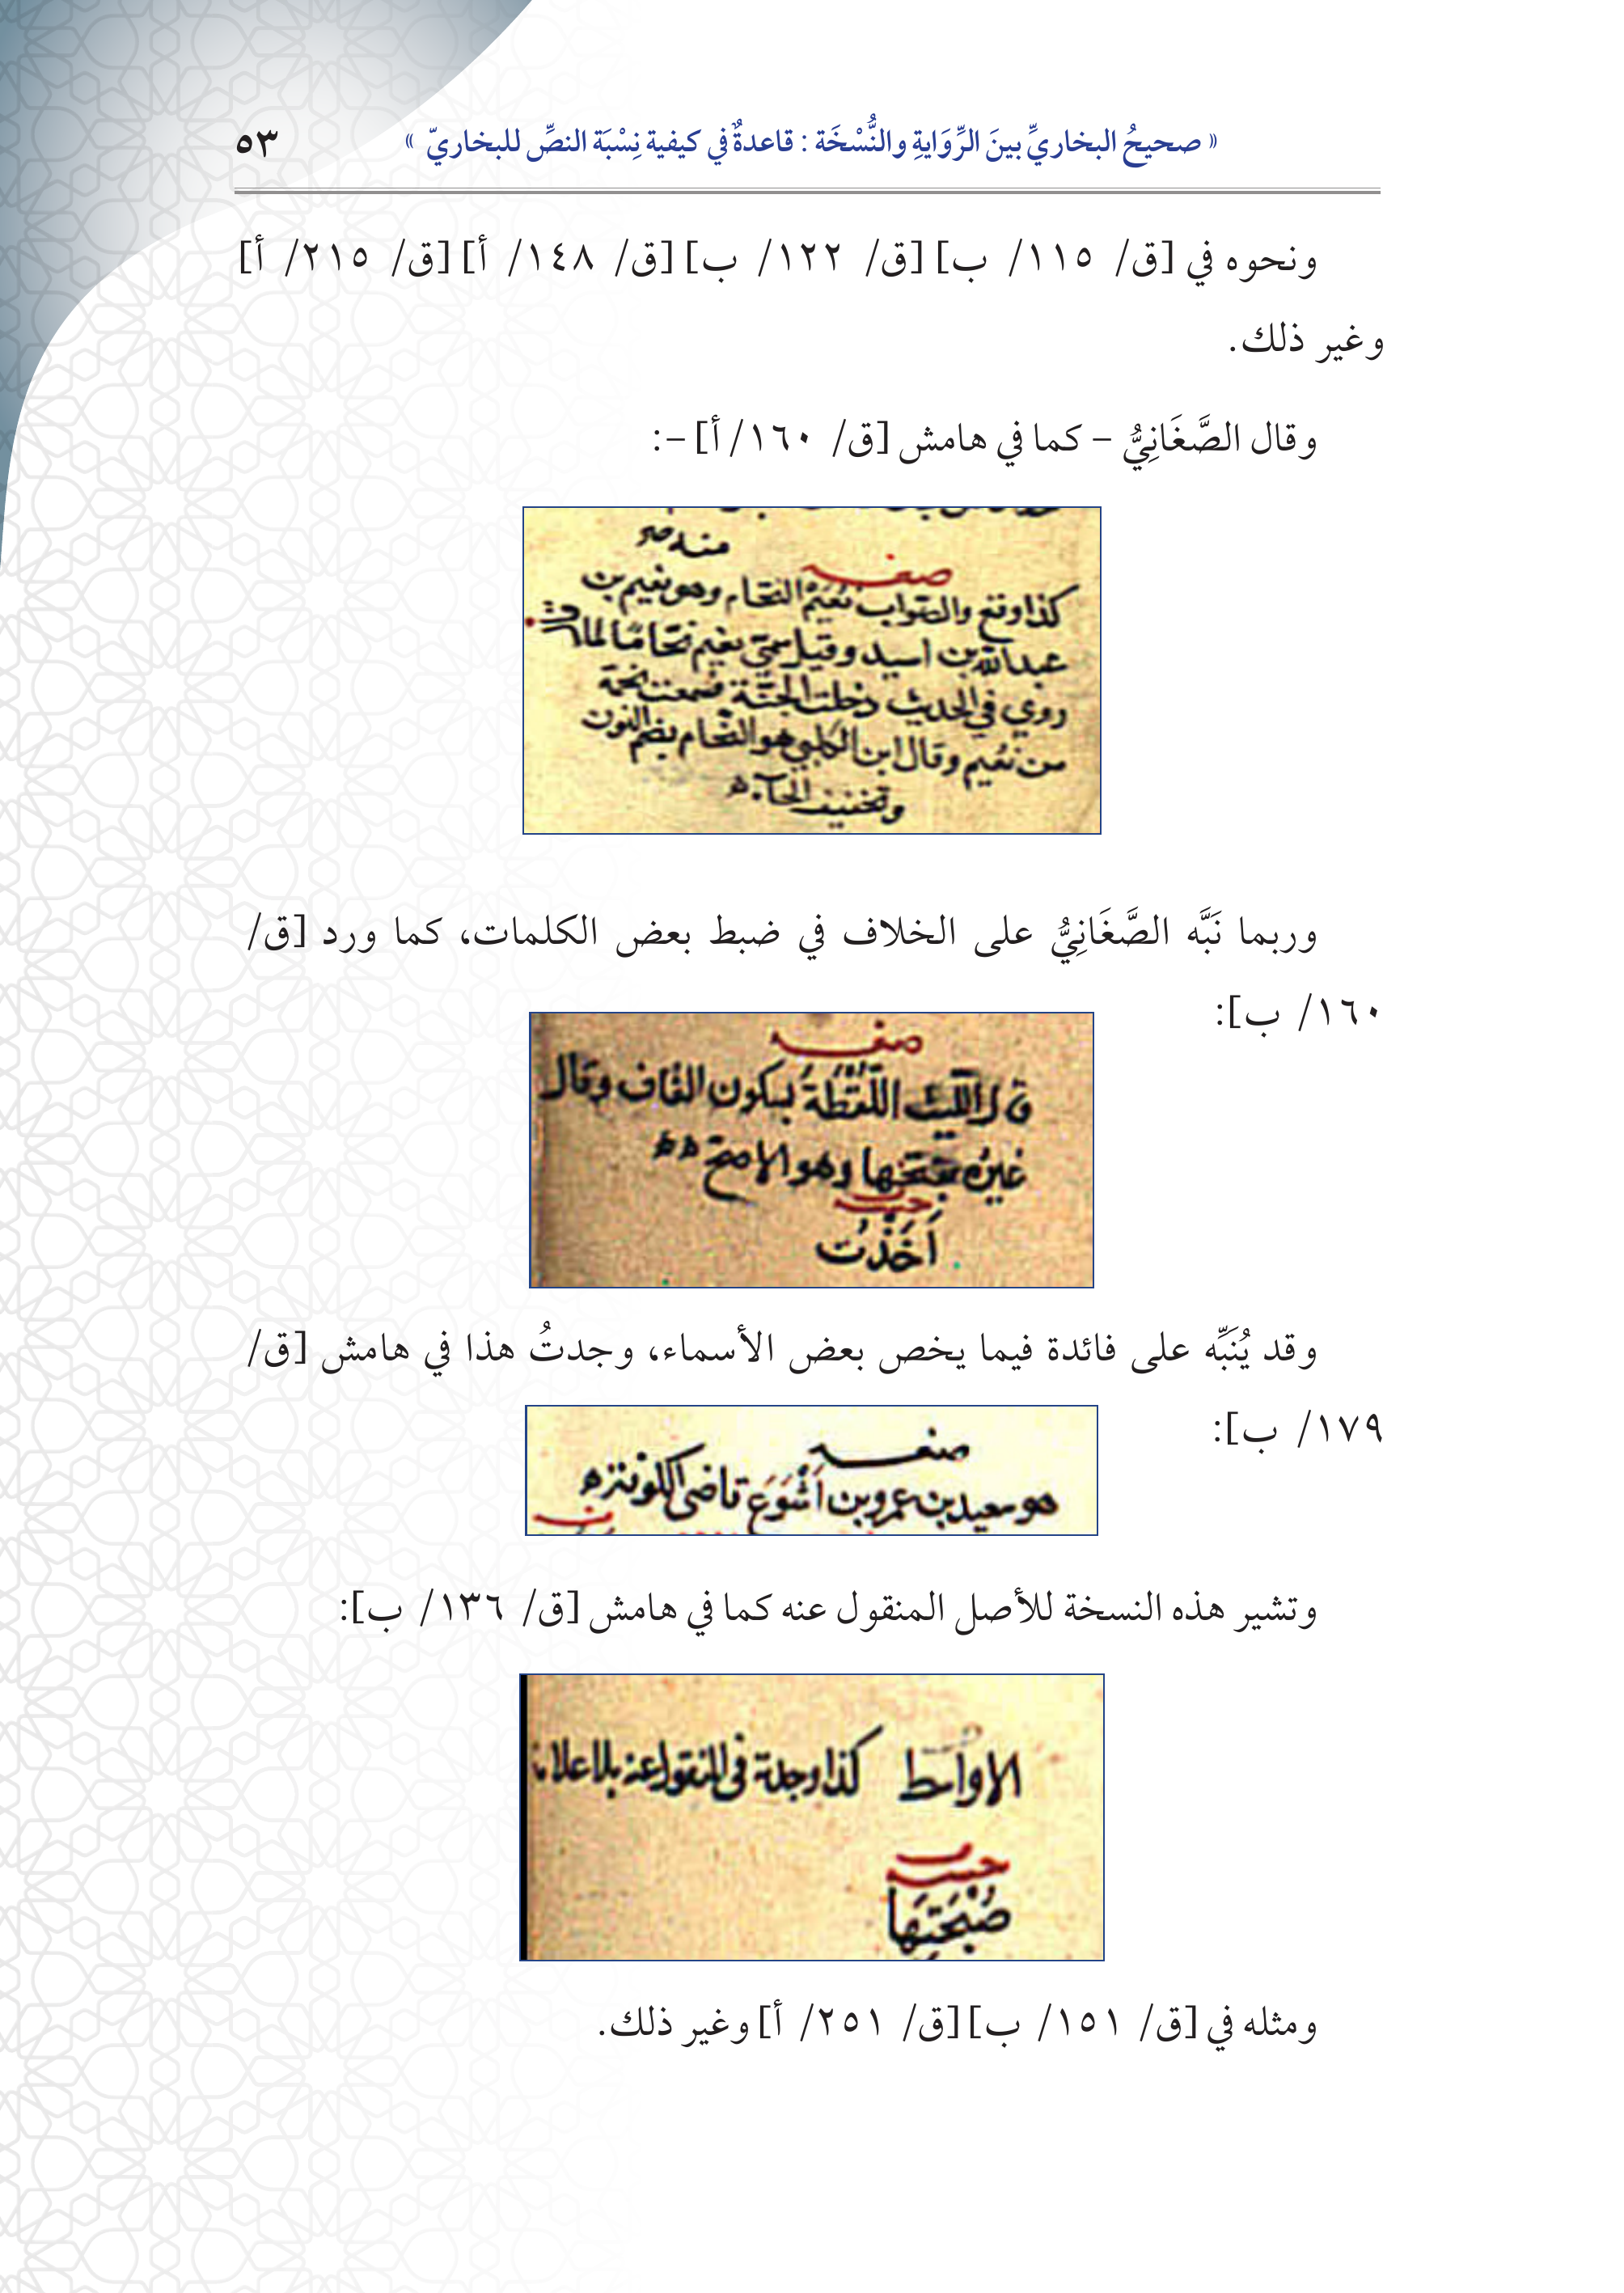 « صحيحُ البخاريِّ بينَ الرِّوَايةِ والنُّسْخَة : قاعدةٌ في كيفية نِسْبَة النصِّ للبخاريّ »
٥٣
ونحوه في [ق/ ١١٥/ ب] [ق/ ١٢٢/ ب] [ق/ ١٤٨/ أ] [ق/ ٢١٥/ أ]
وغير ذلك.
وقال الصَّغَانِيُّ – كما في هامش [ق/ ١٦٠/ أ] –:
منه
صغـ
كذا وقع والصواب نُعَيْمٌ النحام وهو نعيم بن
عبد الله بن اسيد وقيل سمي نعيم نحّامًا لما
روي في الحديث دخلت الجنّة فسمعت نحمة
من نعيم وقال ابن الكلبي هو النُّحام بضم النون
وتخفيف الحآء ه
وربما نَبَّه الصَّغَانِيُّ على الخلاف في ضبط بعض الكلمات، كما ورد [ق/
١٦٠/ ب]:
صغـ
قال الليث اللُّقْطَةُ بسكون القاف وقال
غيره بفتحها وهو الاصح ه ه
أَخَذْتُ
وقد يُنَبِّه على فائدة فيما يخص بعض الأسماء، وجدتُ هذا في هامش [ق/
١٧٩/ ب]:
صغـ
هو سعيد بن عمرو بن اَشْوَعَ قاضي الكوفة ه
وتشير هذه النسخة للأصل المنقول عنه كما في هامش [ق/ ١٣٦/ ب]:
الاواسط كذا وجدته في المنقول عنه بلا علامة
صُبْحَتِهَا
ومثله في [ق/ ١٥١/ ب] [ق/ ٢٥١/ أ] وغير ذلك.